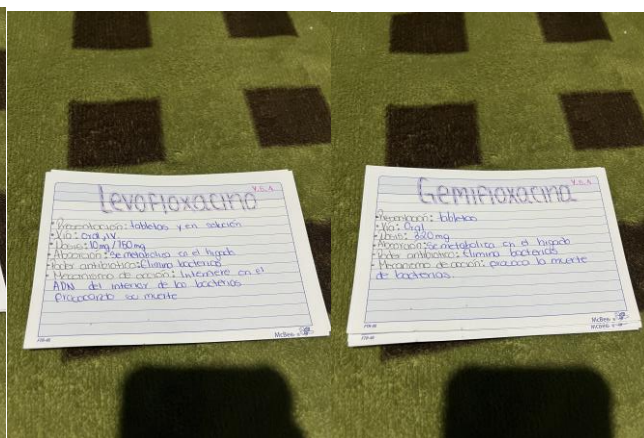 Levofloxacino
• Presentación: tabletas y en solución
• Vía: Oral, IV
• Dosis: 10mg/750mg
• Absorción: se metaboliza en el hígado
• Poder antibiotico: Elimina bacterias
• Mecanismo de acción: Interviene en el
ADN del interior de las bacterias
provocando su muerte
McBee
Gemifloxacina
• Presentación: tabletas
• Vía: Oral
• Dosis: 320mg
• Absorción: Se metaboliza en el hígado
• Poder antibiotico: Elimina bacterias
• Mecanismo de acción: provoca la muerte
de bacterias.
McBee
McBee